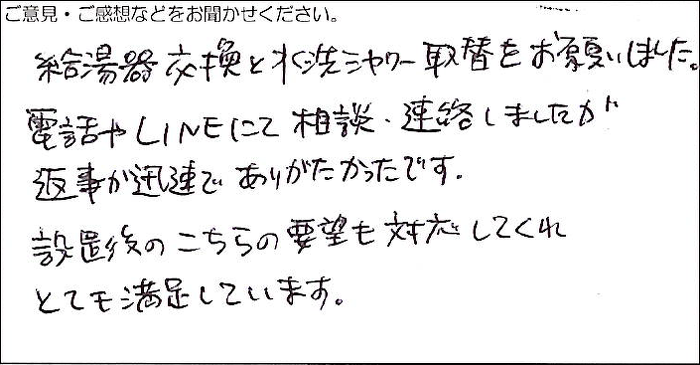 ご意見・ご感想などをお聞かせください。
給湯器交換と水洗シャワー取替をお願いしました。
電話やLINEにて相談・連絡しましたが
返事が迅速でありがたかったです。
設置後のこちらの要望も対応してくれ
とても満足しています。